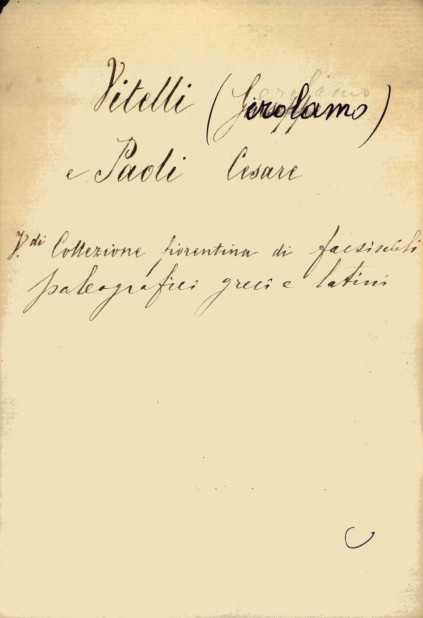 Vitelli (Girolamo)
e Paoli Cesare
V.di Collezione fiorentina di facsimili
paleografici greci e latini